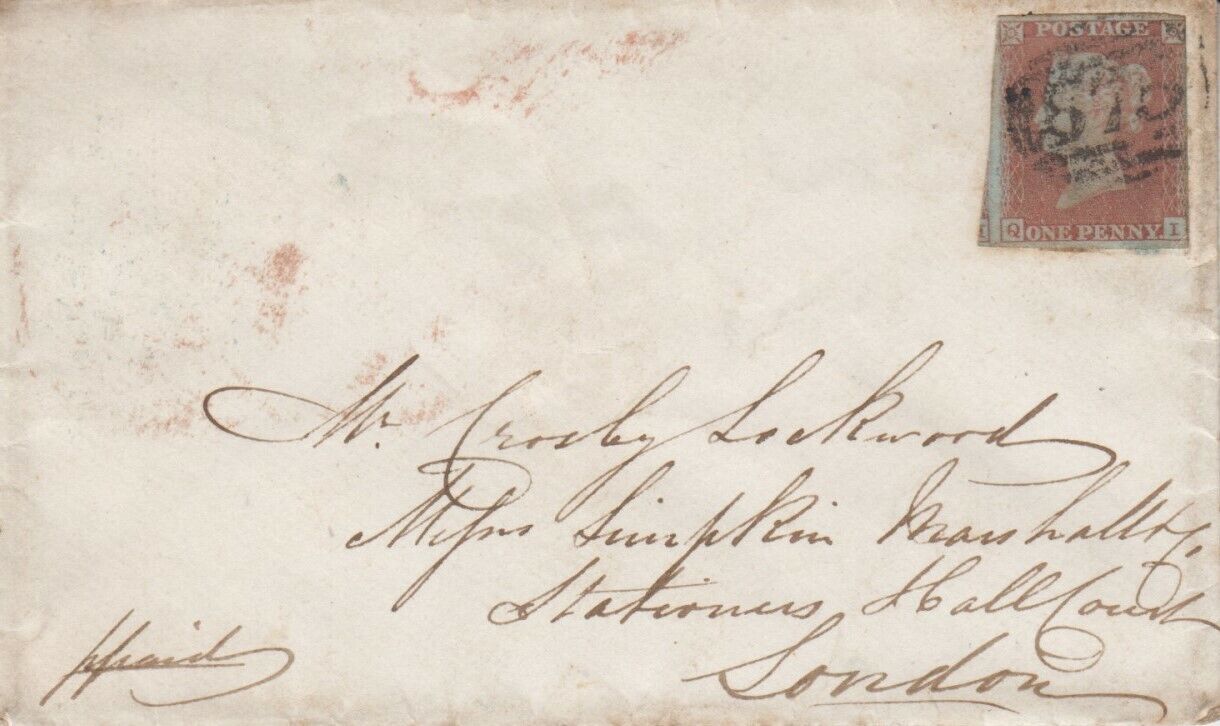 POSTAGE
873
I Q ONE PENNY. I
Mr. Crosby Lockwood
Messrs Simpkin Marshall & Co.
Stationers Hall Court
London
ppaid